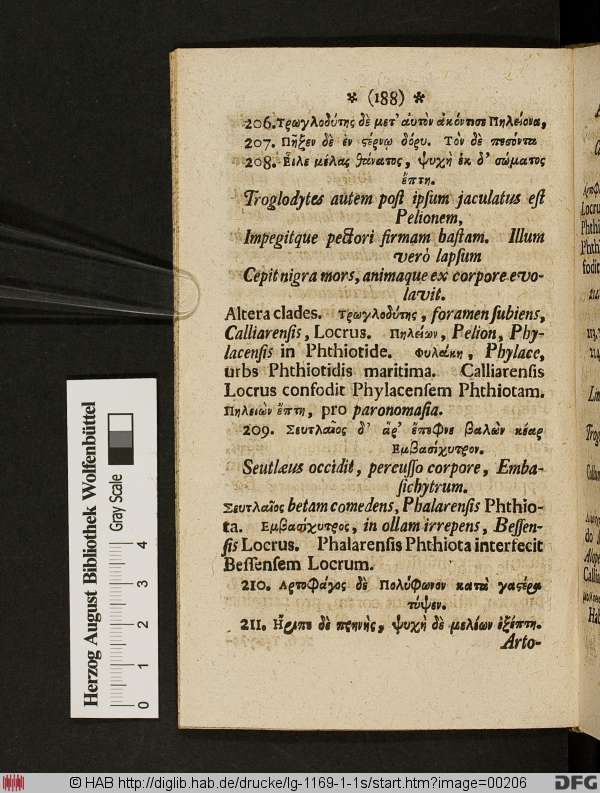 * (188) *
206. Τρωγλοδύτης δὲ μετ' αυτὸν ἀκόντισε Πηλείονα,
207. Πῆξεν δὲ ἐν ϛέρνῳ δόρυ. Τὸν δὲ πεσόντα
208. Εἷλε μέλας θάνατος, ψυχὴ ἐκ δ' σώματος
ἔπτη.
Troglodytes autem poſt ipſum jaculatus eſt
Pelionem,
Impegitque pectori firmam haſtam. Illum
verò lapſum
Cepit nigra mors, animaque ex corpore evo-
lavit.
Altera clades. Τρωγλοδύτης, foramen ſubiens,
Calliarenſis, Locrus. Πηλείων, Pelion, Phy-
lacenſis in Phthiotide. Φυλάκη, Phylace,
urbs Phthiotidis maritima. Calliarenſis
Locrus confodit Phylacenſem Phthiotam.
Πηλειὼν ἔπτη, pro paronomaſia.
209. Σευτλαῖος δ' ἀρ' ἔπεφνε βαλὼν κέαρ
Εμβασίχυτρον.
Seutlæus occidit, percuſſo corpore, Emba-
ſichytrum.
Σευτλαῖος betam comedens, Phalarenſis Phthio-
ta. Εμβασίχυτρος, in ollam irrepens, Beſſen-
ſis Locrus. Phalarenſis Phthiota interfecit
Beſſenſem Locrum.
210. Αρτοφάγος δὲ Πολύφωνον κατὰ γαϛέρα
τύψεν.
211. Ηριπε δὲ πρηνὴς, ψυχὴ δὲ μελέων ἐξέπτη.
Arto-
Herzog August Bibliothek Wolfenbüttel
Gray Scale
0 1 2 3 4
© HAB http://diglib.hab.de/drucke/lg-1169-1-1s/start.htm?image=00206
DFG